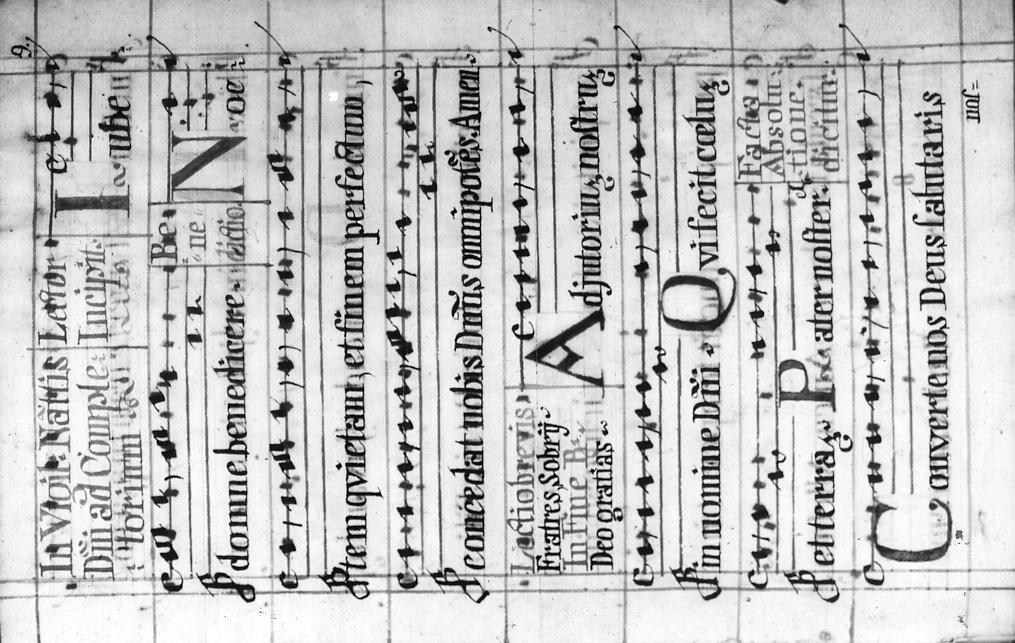 In Vigilie Nãtis Lector
Dñi ad Complet. Incipit.
I ube
domne benedicere. Be
ne
dictio.
N oc
tem quietam, et finem perfectum,
concedat nobis Dñus omnipotẽs. Amen.
Lectio brevis
Fratres, Sobrij
in fine R.
Deo gratias.
A djutorium nostrum
in nomine Dñi. Q vi fecit cælum
et terram. P ater noster. Facta
Absolu-
tione.
dicitur.
C onverte nos Deus salutaris
nos=